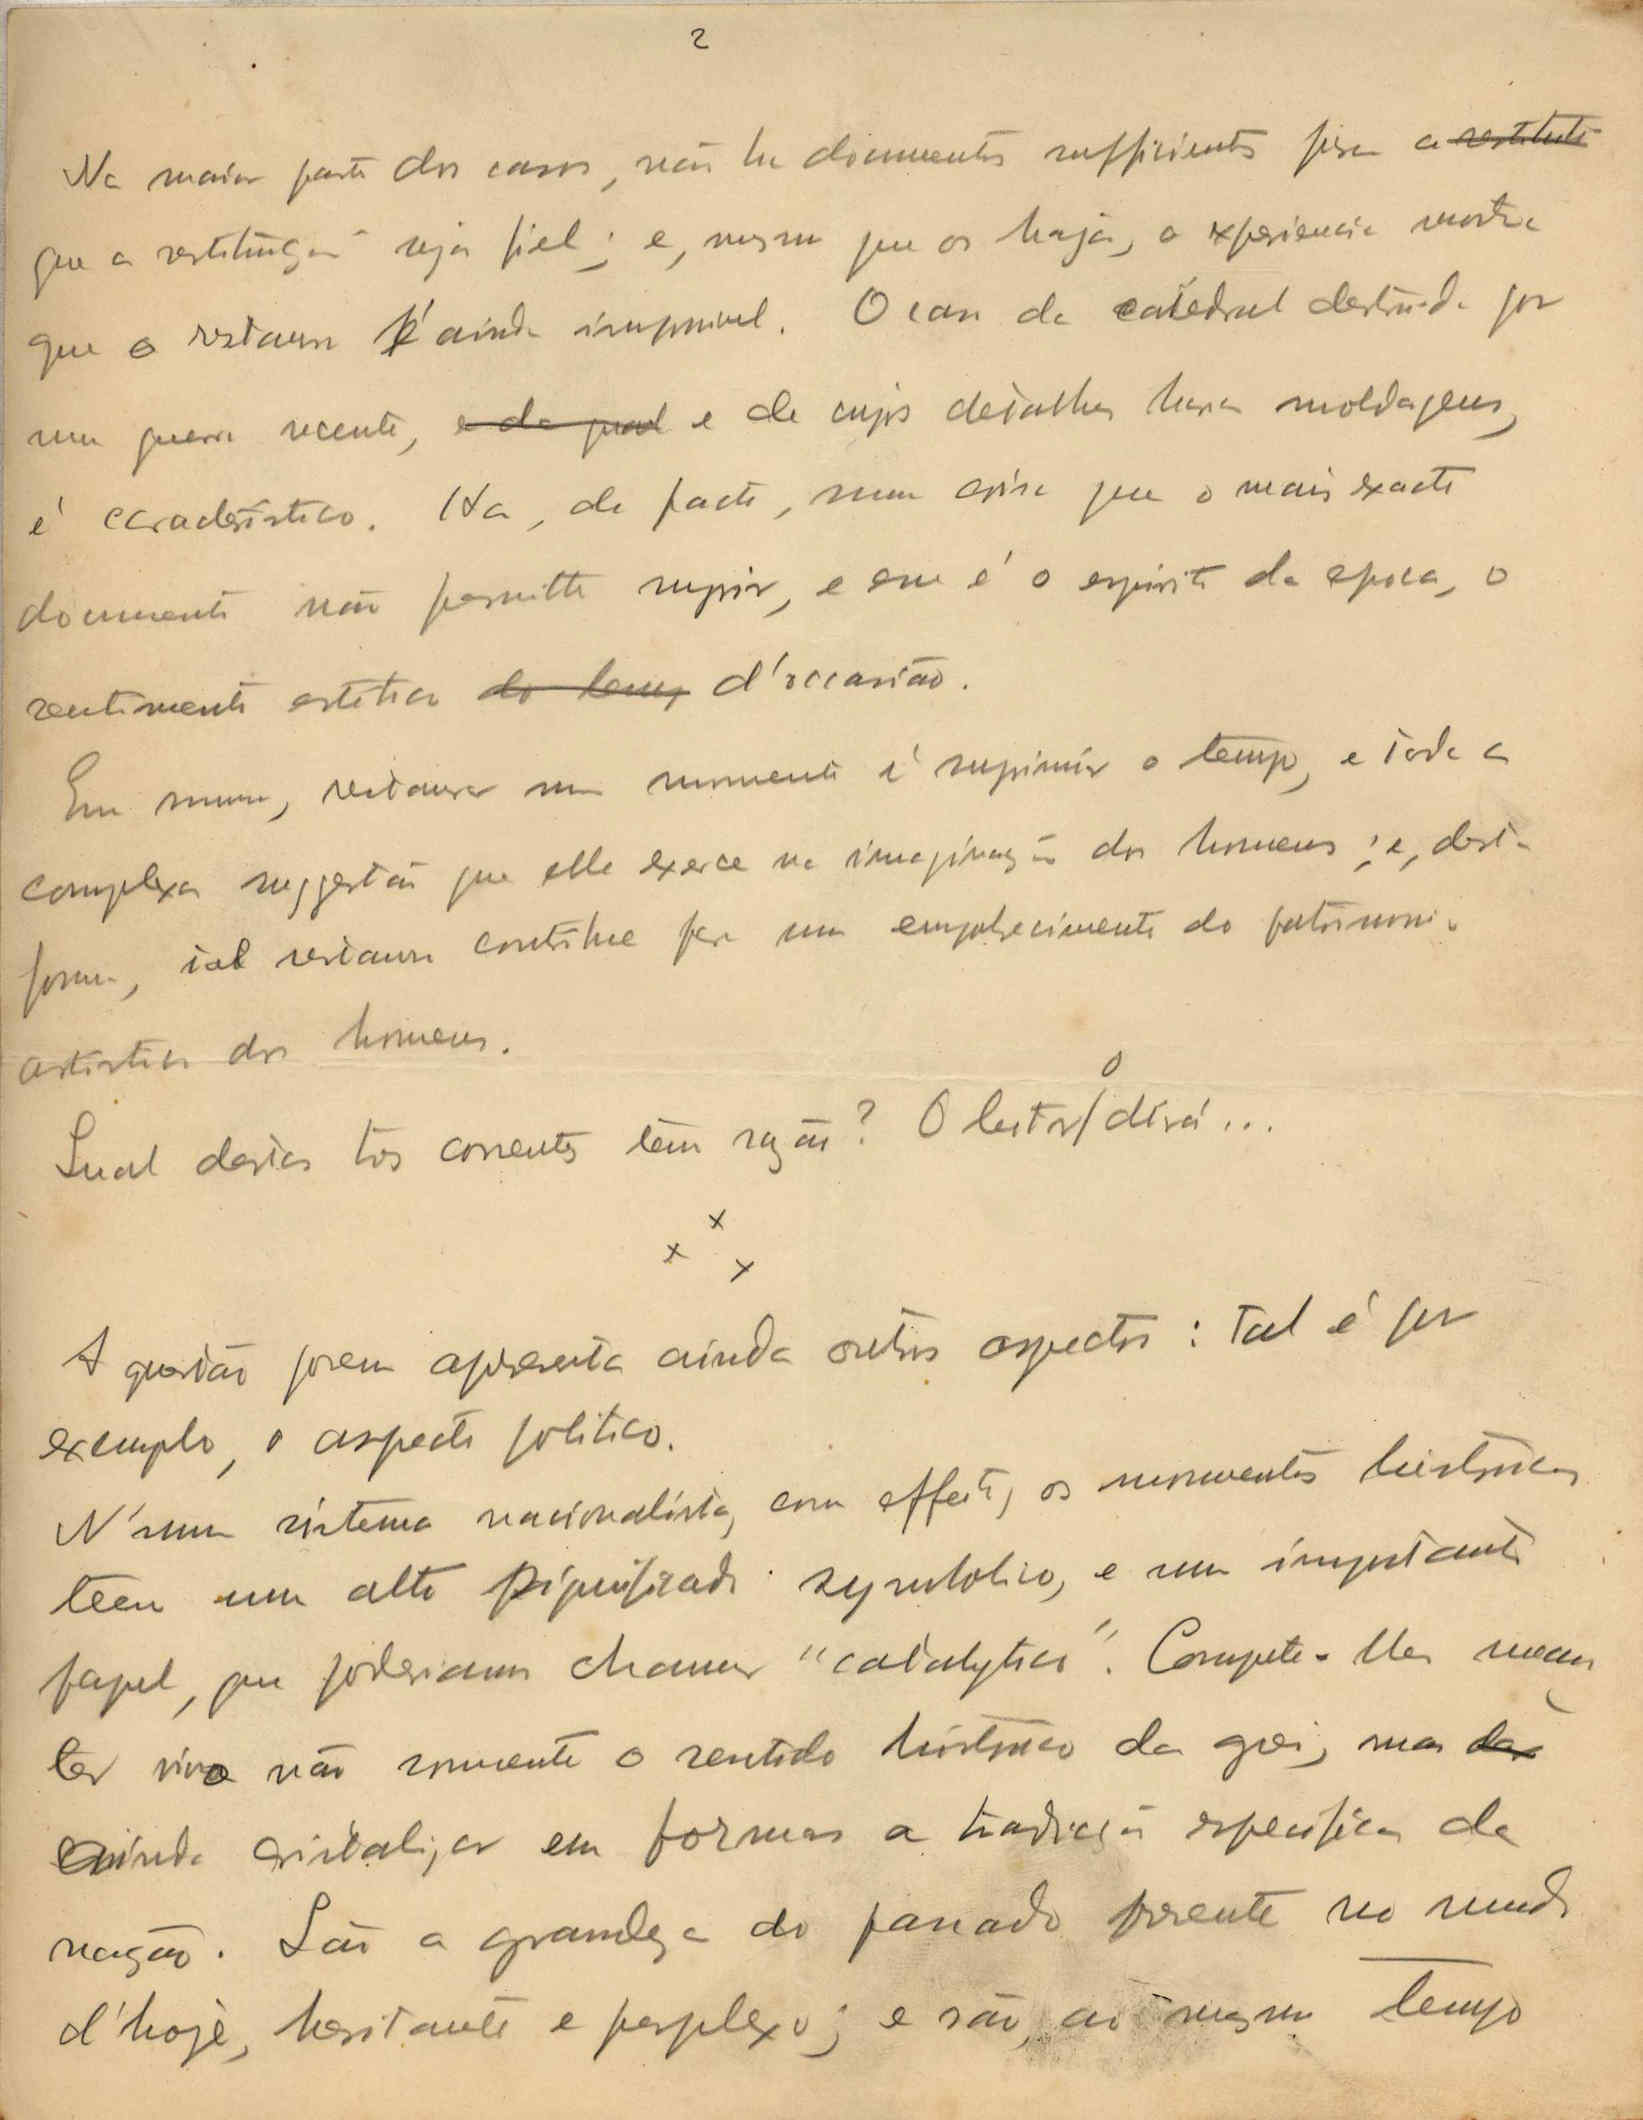 2
Na maior parte dos casos, não ha documentos sufficientes para a restitute
que a restituição seja fiel; e, mesmo que os haja, a experiencia mostra
que o restauro é ainda impossivel. O caso da catedral destruida por
uma guerra recente, e da qual e de cujos detalhes havia moldagens,
é caracteristico. Ha, de facto, uma coisa que o mais exacto
documento não permitte suprir, e esse é o espirito da epoca, o
sentimento estetico do temp d'occasião.
Em summa, restaurar um monumento é suprimir o tempo, e toda a
complexa suggestão que elle exerce na imaginação dos homens; e, desta
forma, tal restauro contribue para um empobrecimento do patrimonio
artistico dos homens.
Qual destas tres correntes tem razão? O leitor o dirá...
x x x
A questão porem apresenta ainda outros aspectos: tal é por
exemplo, o aspecto politico.
N'um sistema nacionalista, com effeito, os monumentos historicos
teem um alto significado symbolico, e um importante
papel, que poderiamos chamar "catalytico". Compete-lhes man
ter vivo não somente o sentido historico da grei, mas
ainda cristalizar em formas a tradição especifica da
nação. São a grandeza do passado presente no mundo
d'hoje, hesitante e perplexo; e são, ao mesmo tempo